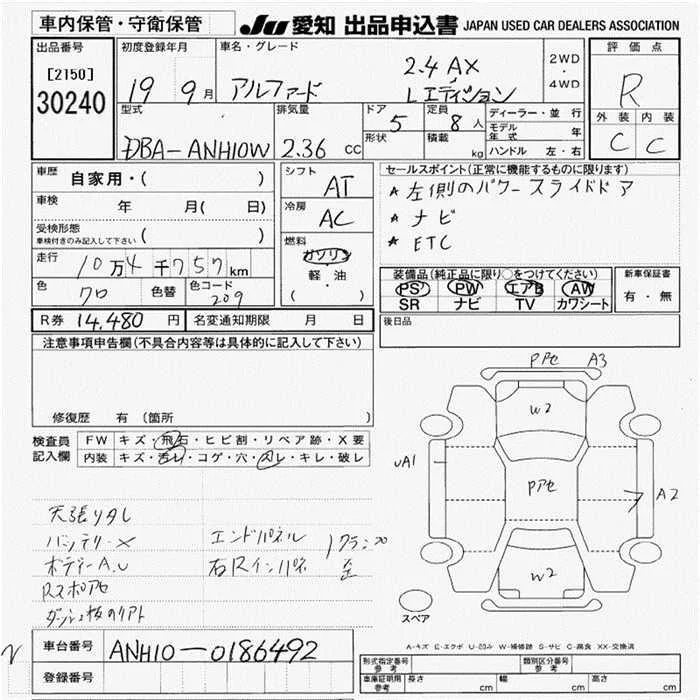 車内保管・守衛保管
JU 愛知 出品申込書 JAPAN USED CAR DEALERS ASSOCIATION
出品番号
[2150]
30240
初度登録年月
19 9月
車名・グレード
アルファード
2.4 AX
Lエディション
2WD
・
4WD
評価点
R
外装 内装
C C
型式
DBA-ANH10W
排気量
2.36 cc
ドア
5
形状
定員
8人
積載
kg
ディーラー・並行
モデル年式 年
ハンドル 左・右
車歴 自家用・( )
車検 年 月( 日)
受検形態
車検付きのみ記入して下さい ( )
走行 10万4千757km
色 クロ 色替 色コード 209
シフト
AT
冷房
AC
燃料
ガソリン
軽・油
( ・ )
セールスポイント(正常に機能するものに限ります)
★左側のパワースライドドア
★ナビ
★ETC
装備品(純正品に限り○をつけてください)
PS PW エアB AW
SR ナビ TV カワシート
新車保証書
有・無
R券 14,480 円 名変通知期限 月 日
後日品
注意事項申告欄(不具合内容等は具体的に記入して下さい)
修復歴 有 (箇所 )
検査員記入欄
FW キズ・飛石・ヒビ割・リペア跡・X要
内装 キズ・汚レ・コゲ・穴・スレ・キレ・破レ
天張りタレ
バッテリーX
ボディーA.U
Rスポアセ
エンドパネル
右Rインパネ
Pアセ A3
W2
UA1
Pアセ
A2
W2
スペア
車台番号 ANH10-0186492
登録番号
A-キズ E-エクボ U-凹み W-補修跡 S-サビ C-腐食 XX-交換済
形式指定番号 参考
類別区分番号 参考
車庫証明 参考 長さ cm 幅 cm 高さ cm